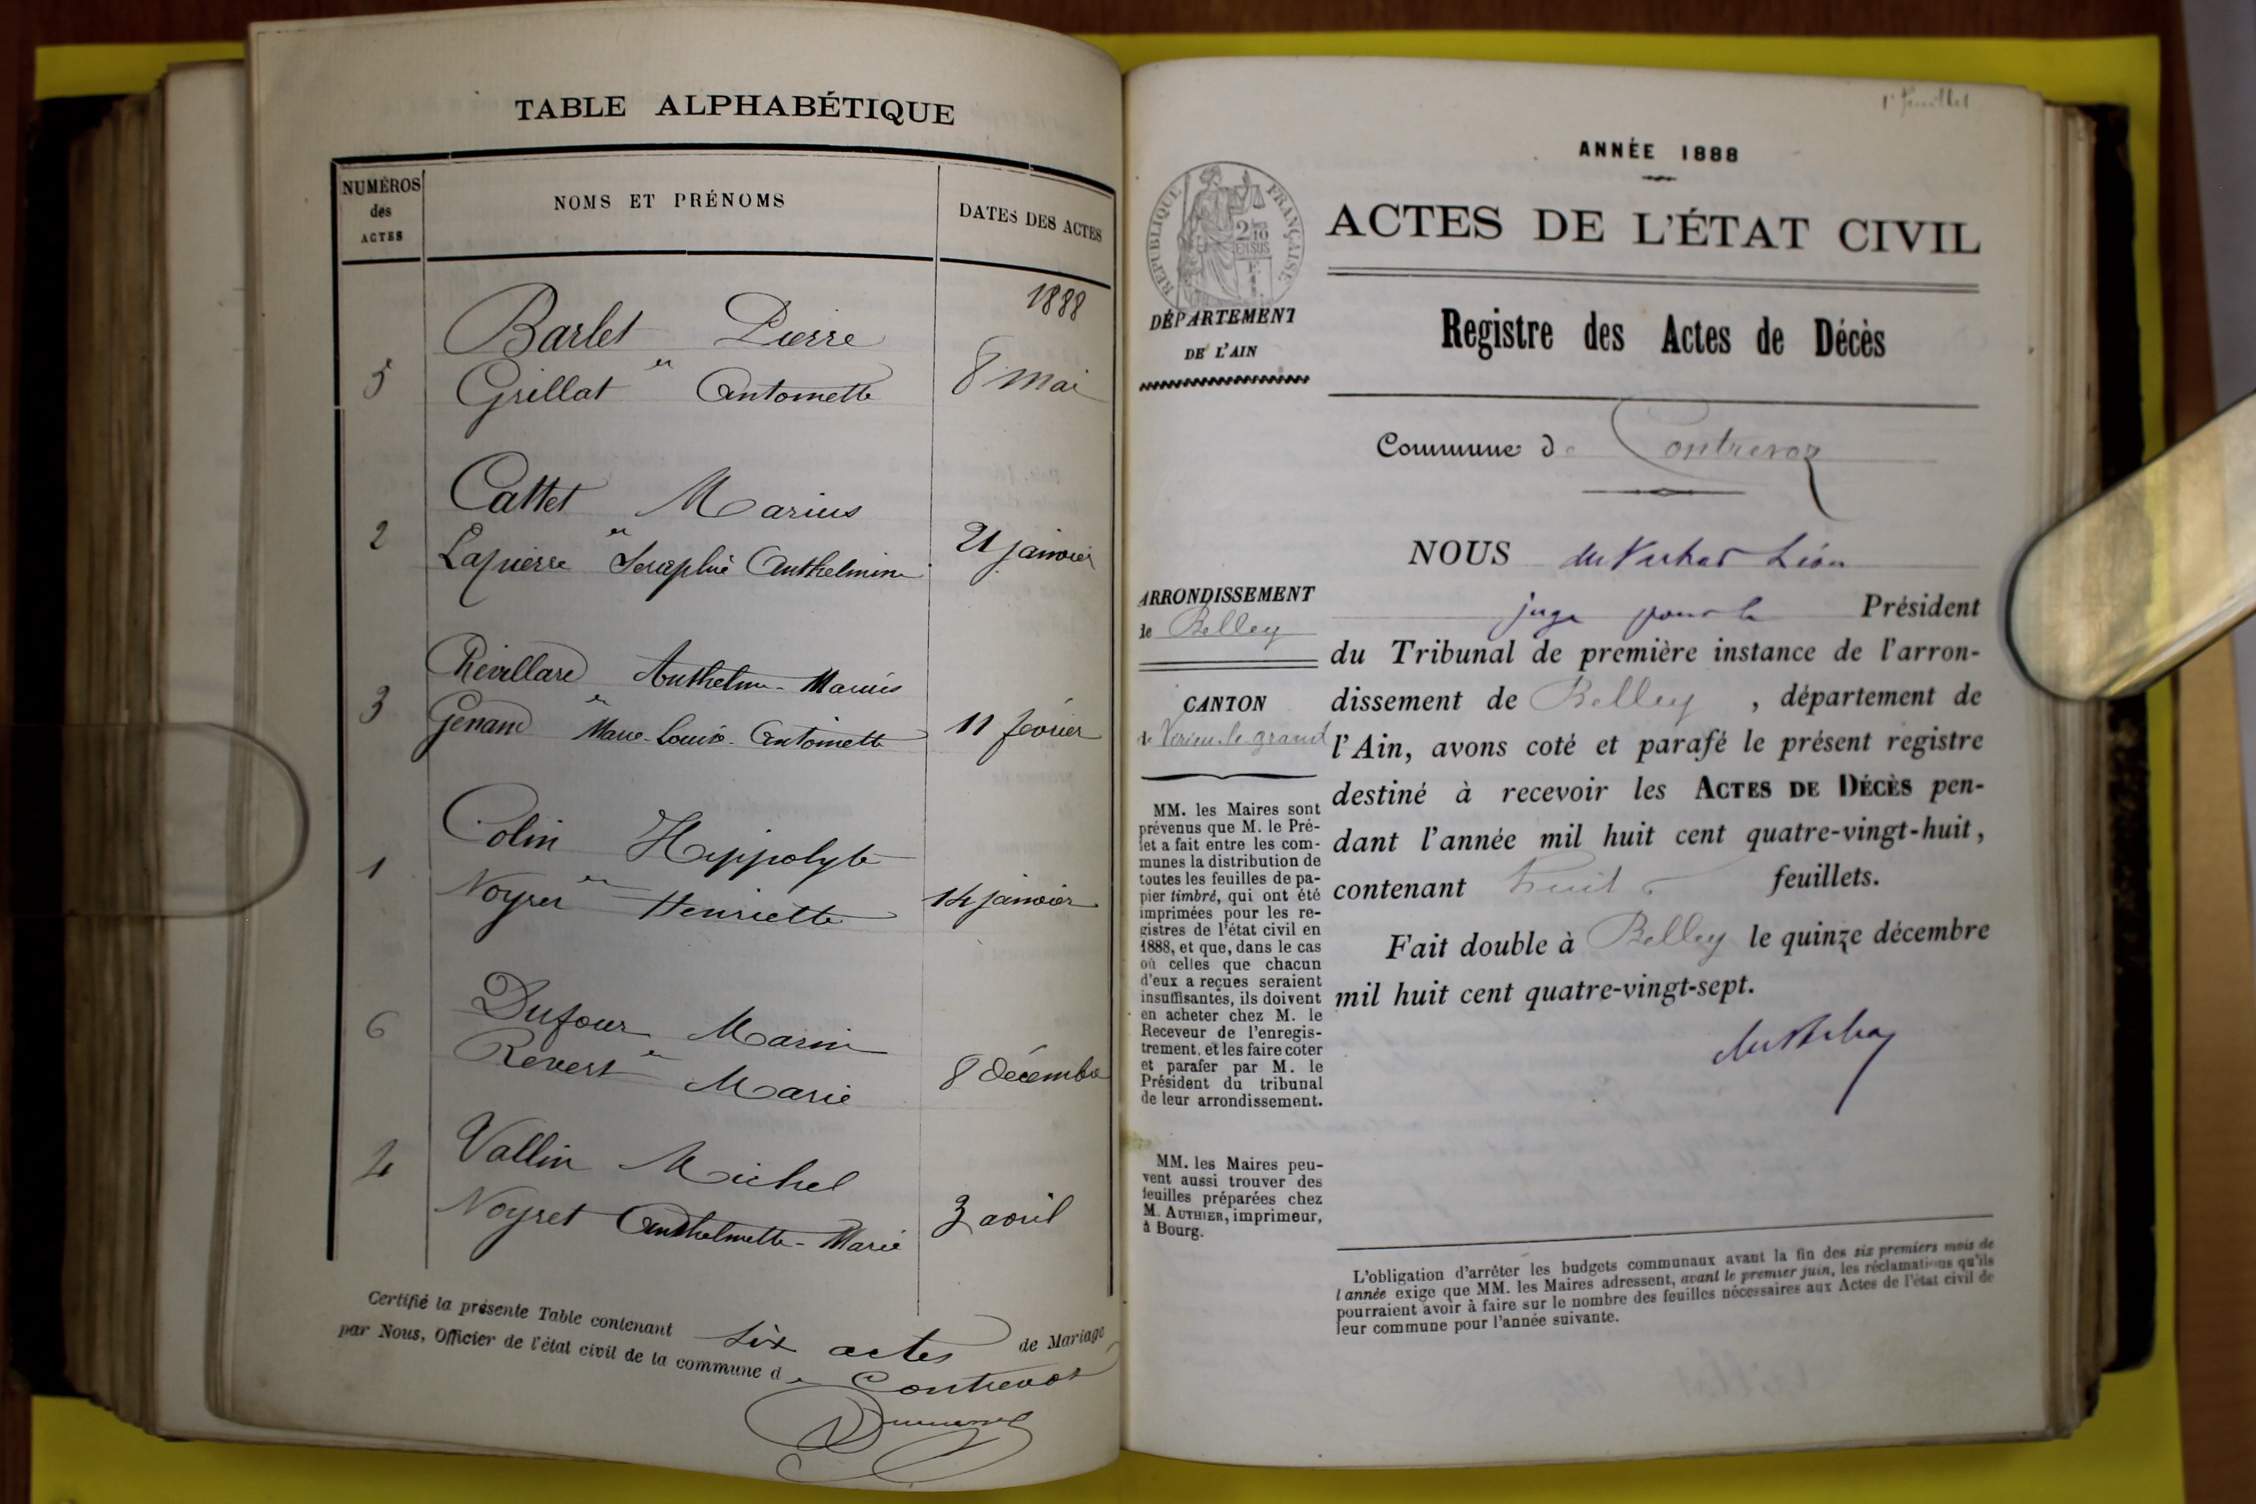 TABLE ALPHABÉTIQUE
NUMÉROS
des
ACTES
NOMS ET PRÉNOMS
DATES DES ACTES
1888
Barlet Pierre
et
5 Grillat Antoinette 8 mai
Cattet Marius
et
2 Lapierre Seraphie Anthelmine 21 janvier
Révillard Anthelme-Marius
et
3 Genand Marie-Louise-Antoinette 11 février
Colin Hippolyte
et
1 Noyret Henriette 14 janvier
Dufour Marin
et
6 Revest Marie 8 décembre
Vallin Michel
4 Noyret Anthelmette-Marie 3 avril
Certifié la présente Table contenant six actes de Mariage
par Nous, Officier de l'état civil de la commune de Contrevoz
1er feuillet
ANNÉE 1888
RÉPUBLIQUE FRANÇAISE
ACTES DE L'ÉTAT CIVIL
DÉPARTEMENT
DE L'AIN
Registre des Actes de Décès
Commune de Contrevoz
NOUS Léon
juge pour le Président
du Tribunal de première instance de l'arron-
dissement de Belley, département de
l'Ain, avons coté et parafé le présent registre
destiné à recevoir les ACTES DE DÉCÈS pen-
dant l'année mil huit cent quatre-vingt-huit,
contenant huit feuillets.
Fait double à Belley le quinze décembre
mil huit cent quatre-vingt-sept.
ARRONDISSEMENT
de Belley
CANTON
de Virieu-le-grand
MM. les Maires sont
prévenus que M. le Pré-
fet a fait entre les com-
munes la distribution de
toutes les feuilles de pa-
pier timbré, qui ont été
imprimées pour les re-
gistres de l'état civil en
1888, et que, dans le cas
où celles que chacun
d'eux a reçues seraient
insuffisantes, ils doivent
en acheter chez M. le
Receveur de l'enregis-
trement, et les faire coter
et parafer par M. le
Président du tribunal
de leur arrondissement.
MM. les Maires peu-
vent aussi trouver des
feuilles préparées chez
M. AUTHIER, imprimeur,
à Bourg.
L'obligation d'arrêter les budgets communaux avant la fin des six premiers mois de
l'année exige que MM. les Maires adressent, avant le premier juin, les réclamations qu'ils
pourraient avoir à faire sur le nombre des feuilles nécessaires aux Actes de l'état civil de
leur commune pour l'année suivante.